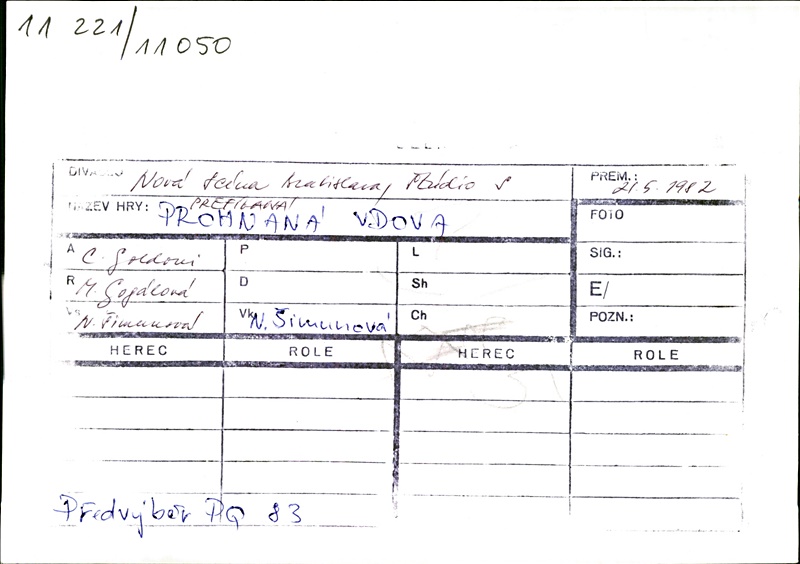 11 221/11050
DIVADLO Nová scéna Bratislava, Štúdio S
PREM.: 21.5.1982
PREFÍKANÁ
NÁZEV HRY: PROHNANÁ VDOVA
FOTO
A C. Goldoni P L SIG.:
R M. Gogálová D Sh E/
N. Šimunová Vk N. Šimunová Ch POZN.:
HEREC ROLE HEREC ROLE
Předvýběr PQ 83